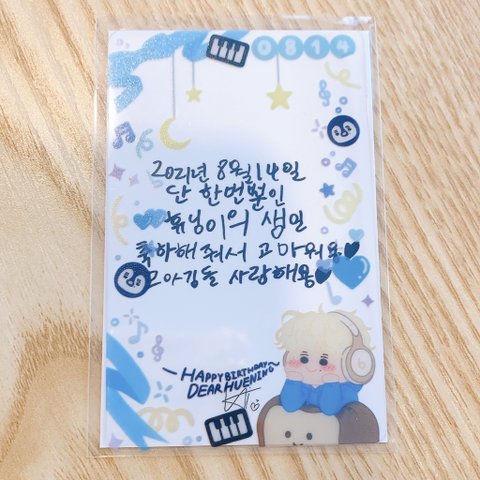 0814
2021년 8월 14일
단 한번뿐인
휴닝이의 생일
축하해줘서 고마워용♥
모아깅들 사랑해용♥
-HAPPY BIRTHDAY~
DEAR HUENING